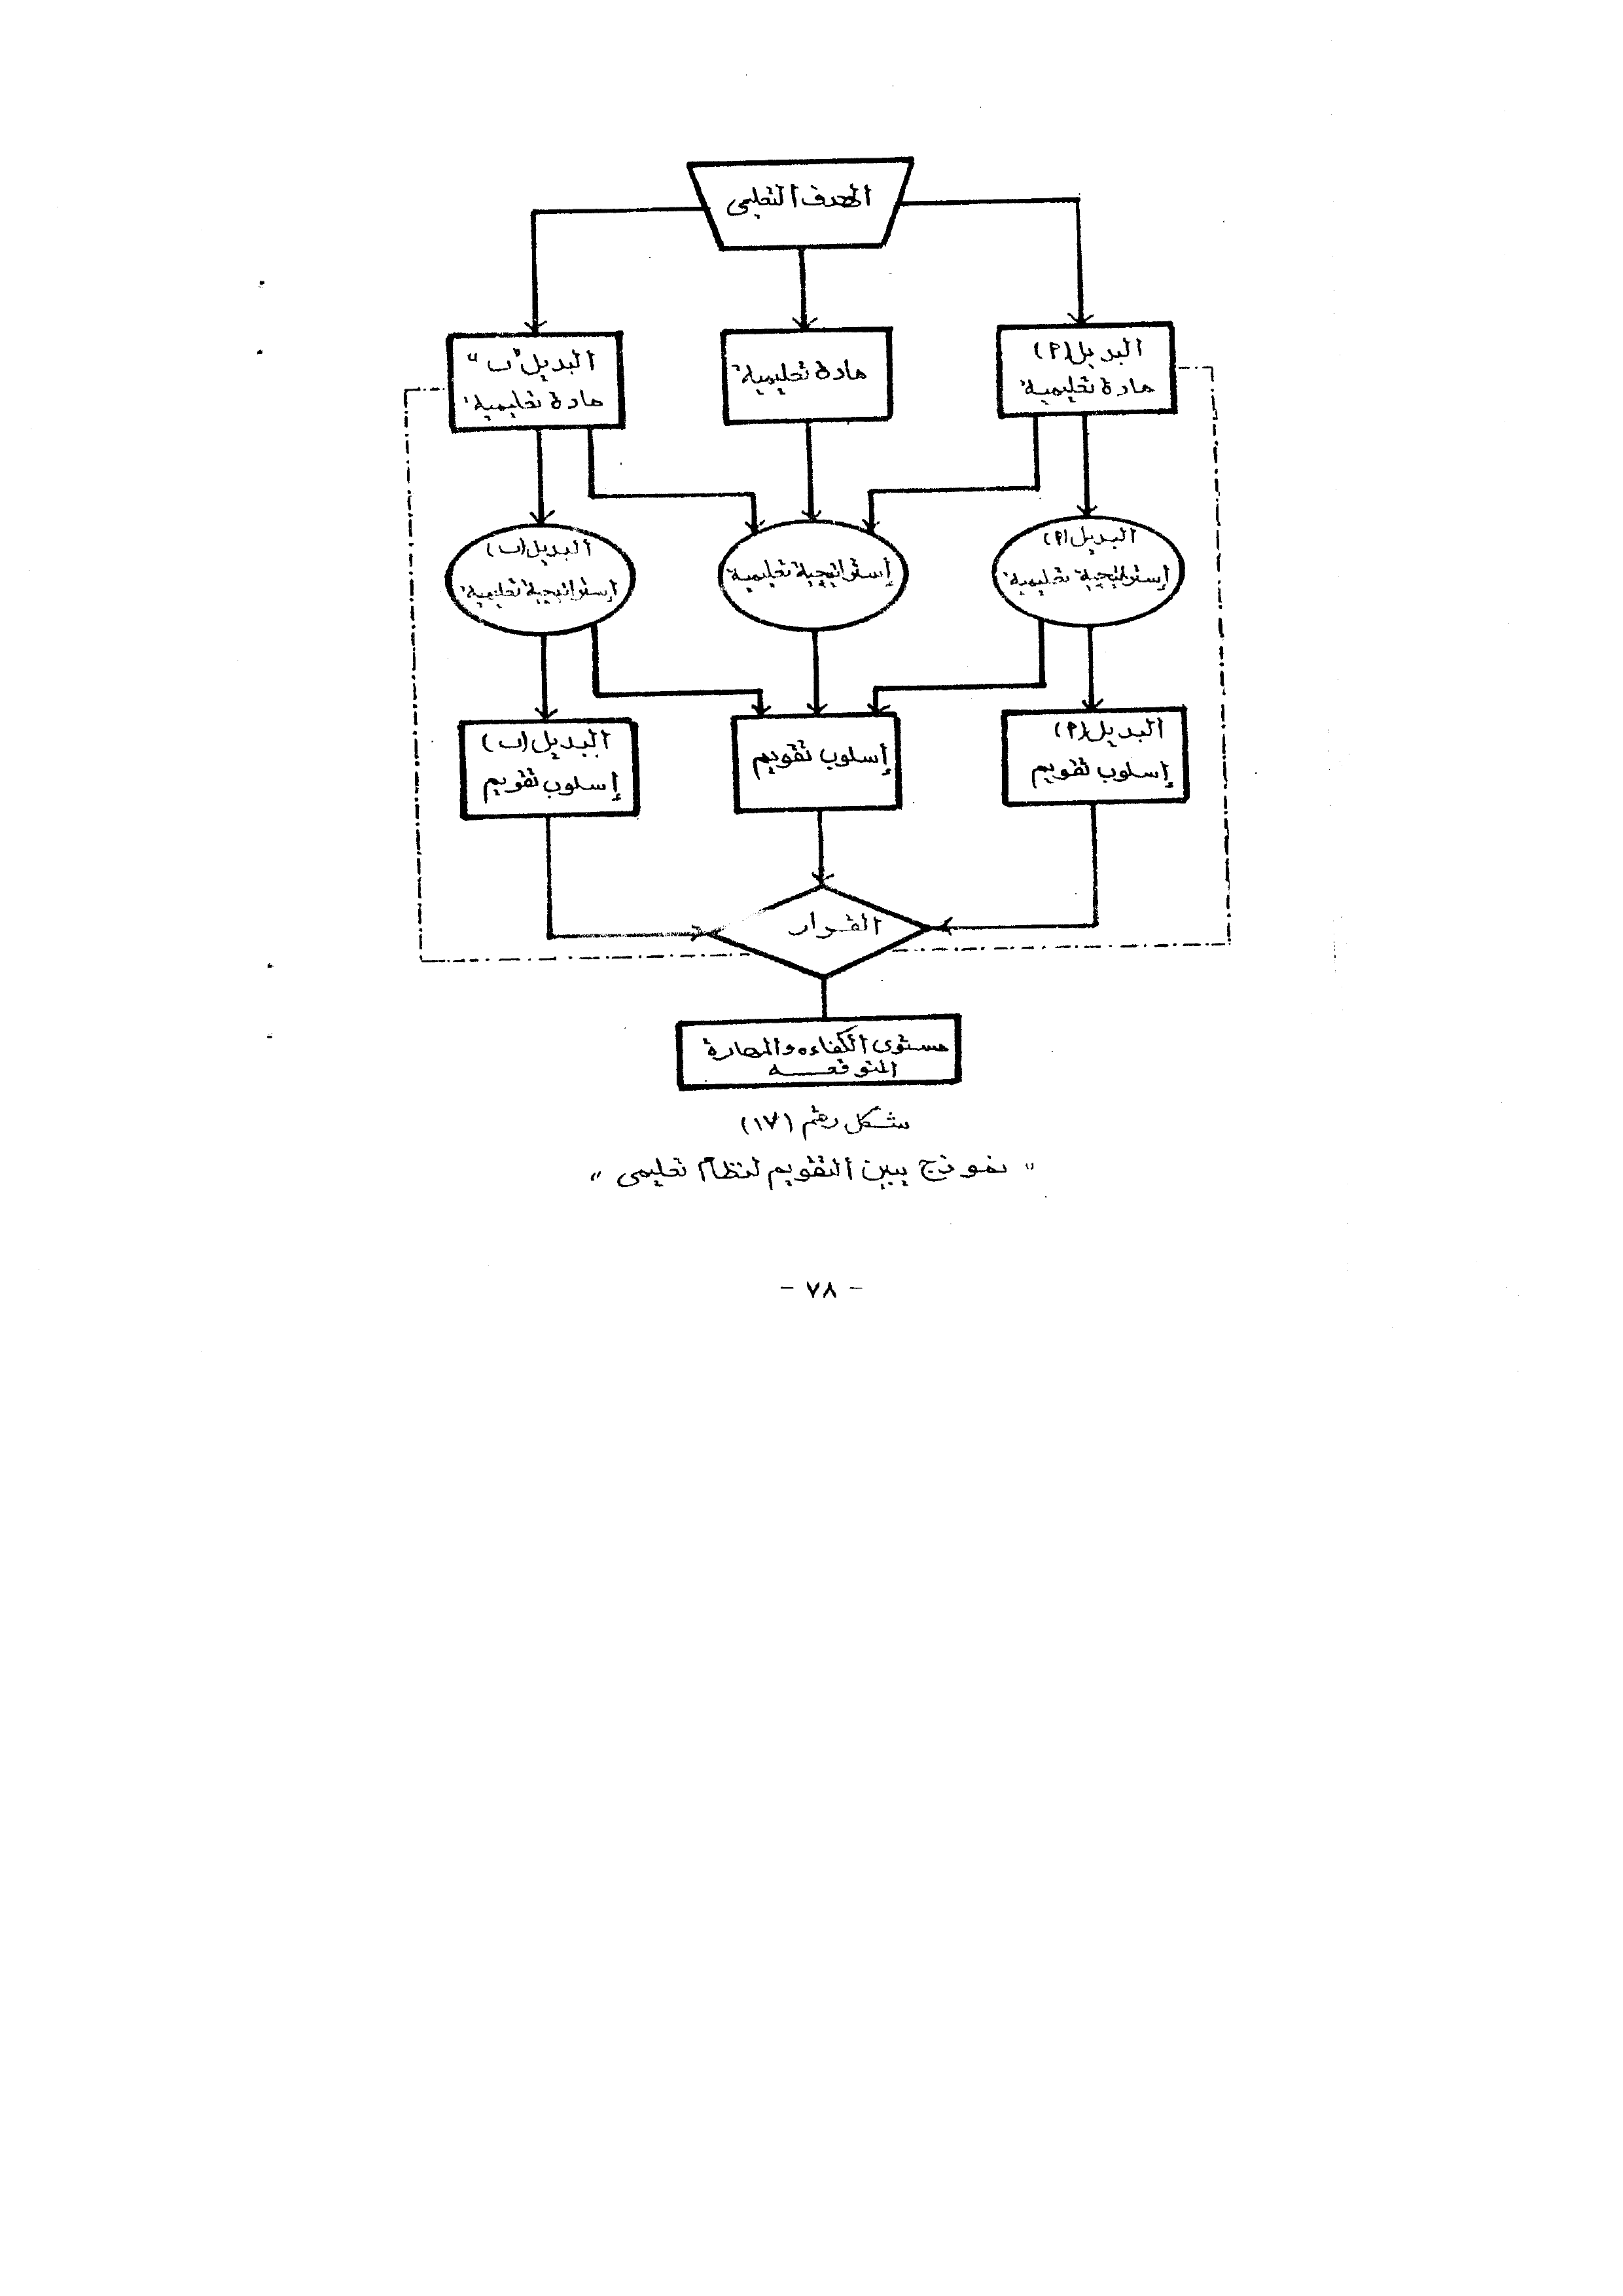 الهدف التعليمى
البديل (أ)
مادة تعليمية
مادة تعليمية
البديل "ب"
مادة تعليمية
البديل (أ)
إستراتيجية تعليمية
إستراتيجية تعليمية
البديل (ب)
إستراتيجية تعليمية
البديل (أ)
إسلوب تقويم
إسلوب تقويم
البديل (ب)
إسلوب تقويم
القرار
مستوى الكفاءه والمهارة
المتوقعه
شكل رقم (١٧)
" نموذج يبين التقويم لنظام تعليمى "
- ٧٨ -